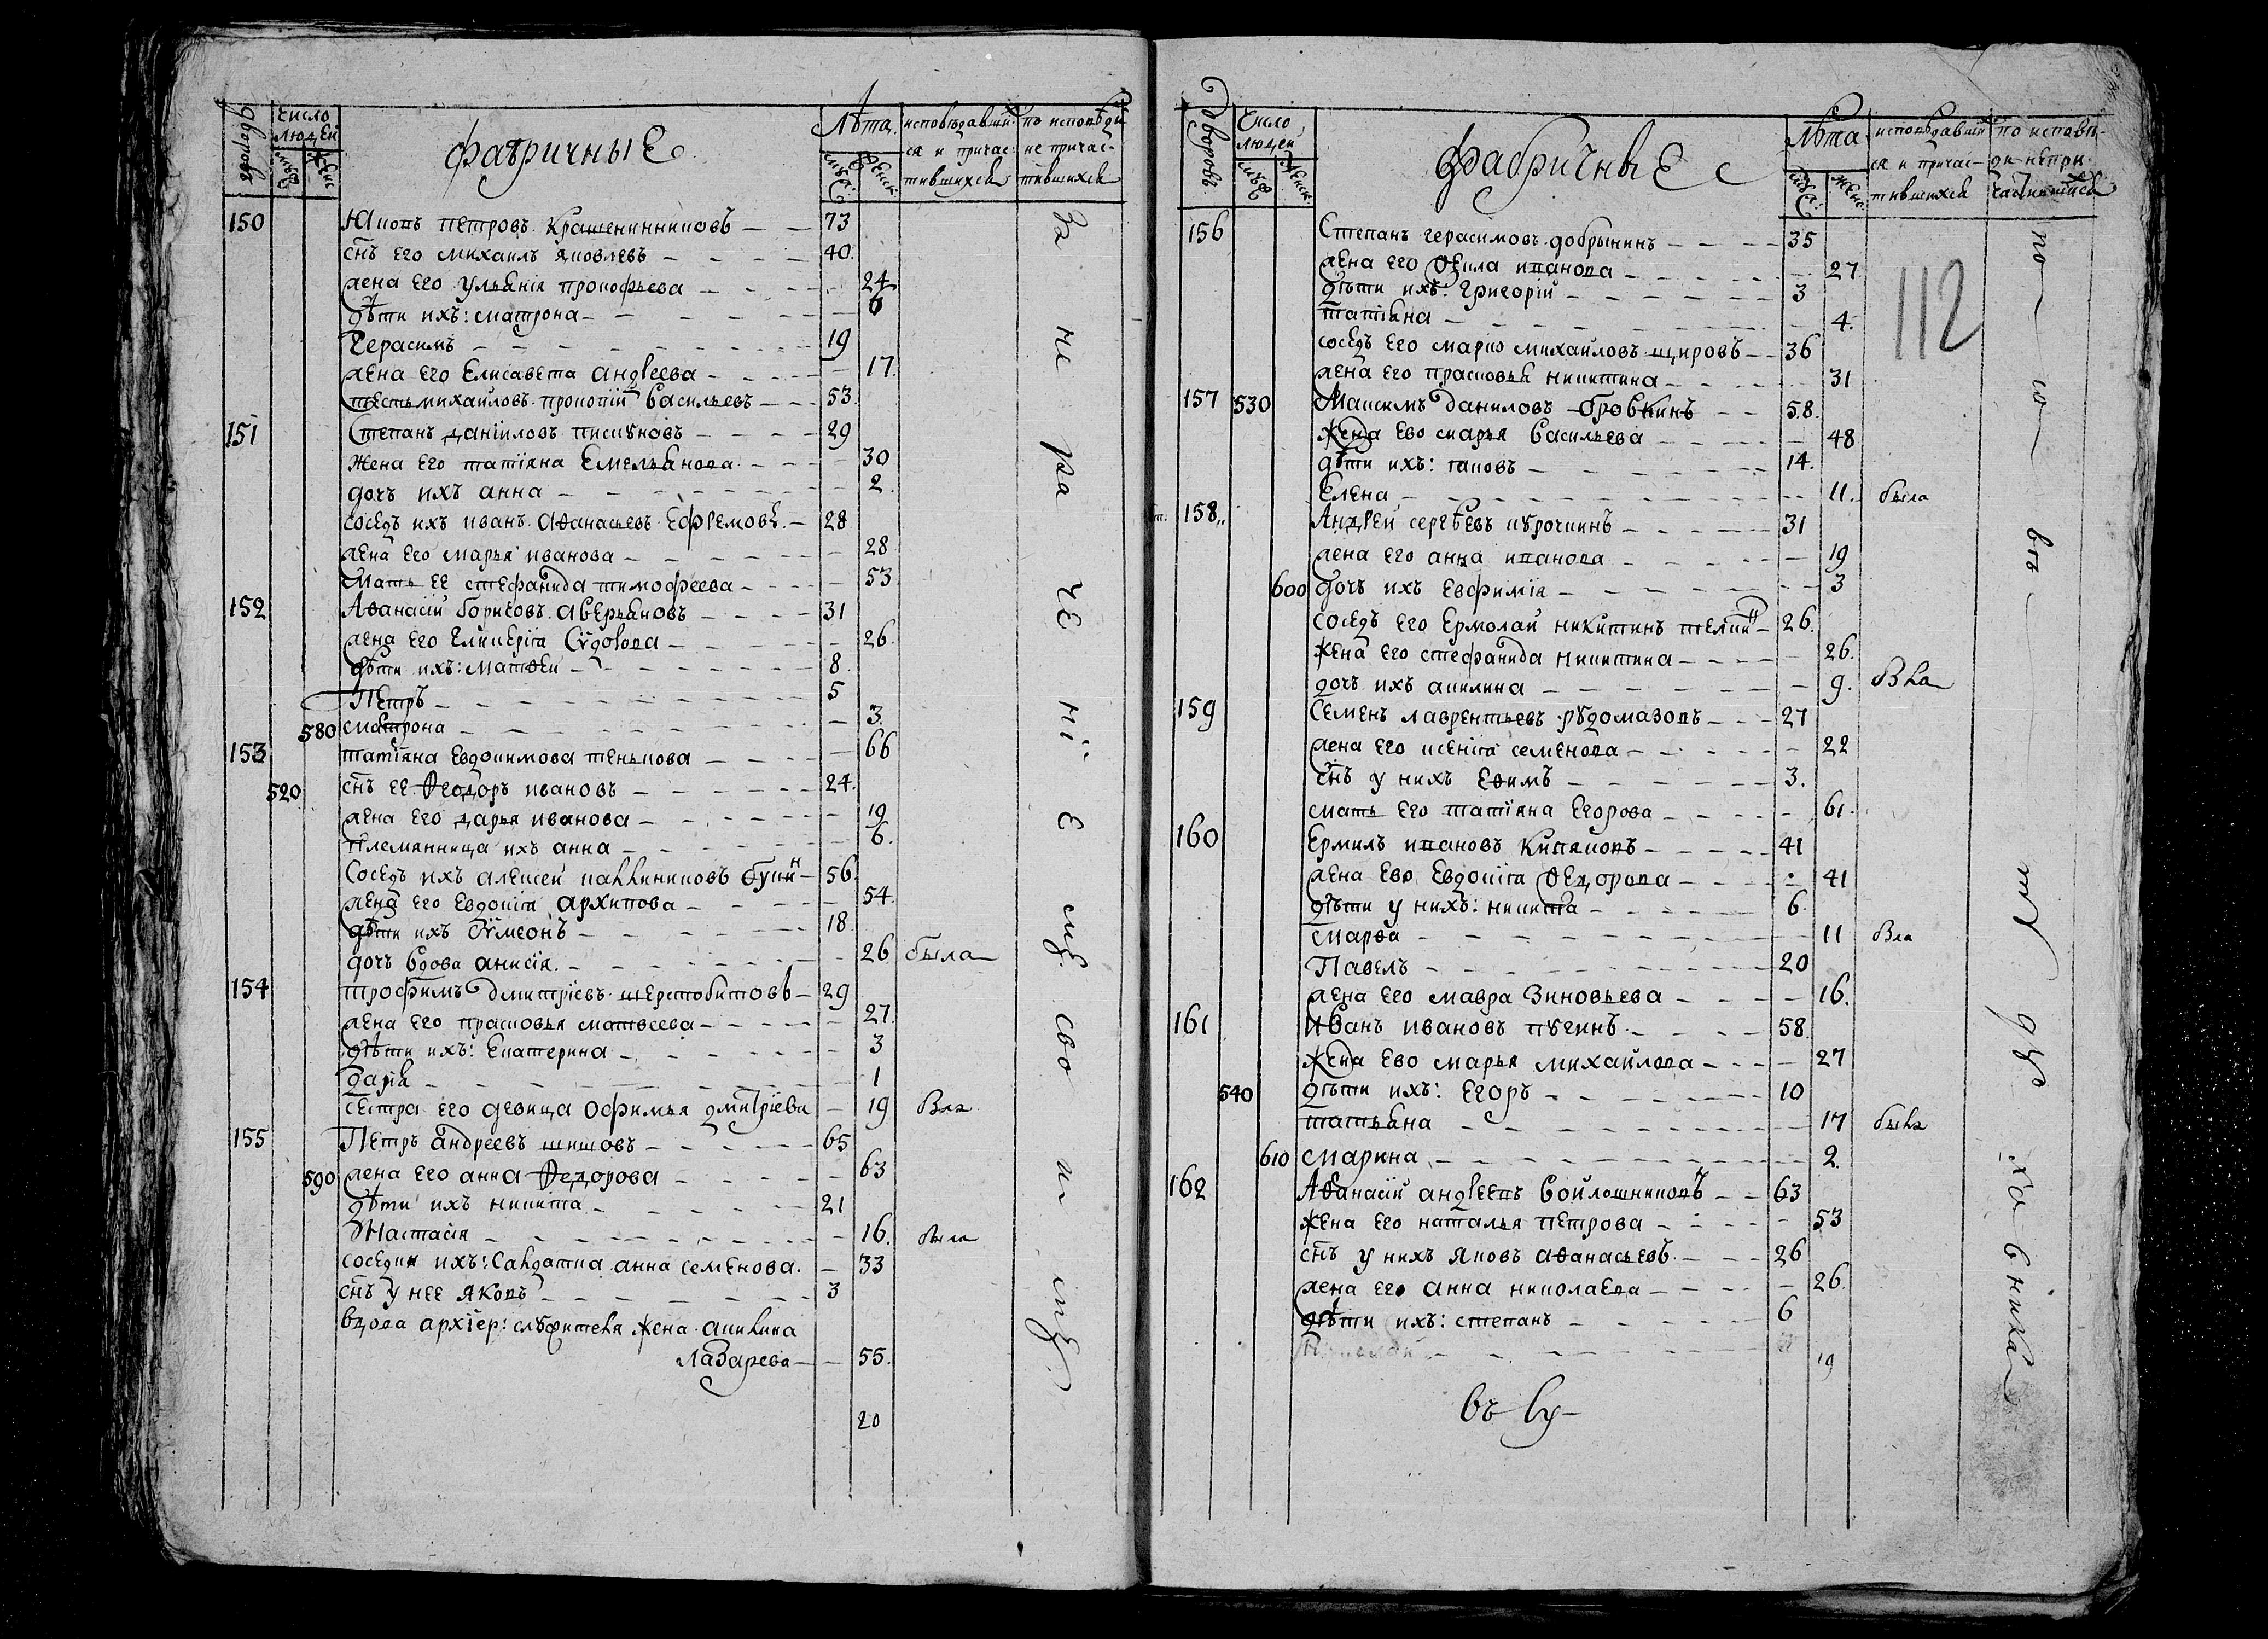 дворовъ
число людей
мужс женс
фабричные
Лѣта
мужс: женск:
исповѣдавших
ся и причас-
тившихся
по исповѣди
не причас-
тившихся
150 Яковъ петровъ крашенинниковъ 73
снъ его михаилъ яковлевъ 40
жена его ульянiя прокофьева 24
дѣти ихъ: матрона 6
Герасимъ 19
жена его Елисавета андреева 17
тесть михаиловъ прокопiй васильевъ 53
151 Степанъ данiиловъ пискуновъ 29
жена его татiяна Емельянова 30
дочь ихъ анна 2
сосѣдъ ихъ иванъ аѳанасьевъ Ефремовъ 28
жена его марья иванова 28
мать ее стефанида тимофеева 53
152 Аѳанасiй борисовъ аверьяновъ 31
жена его Гликерiа 26
дѣти ихъ: матѳеи 8
Петръ 5
580 матрона 3
153 татiяна Евдокимова тенькова 66
520 снъ ее Ѳеодоръ ивановъ 24
жена его дарья иванова 19
племянница ихъ анна 6
Сосѣдъ ихъ алексеи калининиковъ букинъ 56
жена его Евдокiа архипова 54
дѣти ихъ Сѵмеонъ 18
дочь вдова анисiя 26 была
154 трофимъ дмитрiевъ шерстобитовъ 29
жена его прасковья матвеева 27
дѣти ихъ: Екатерина 3
дарiа 1
сестра его девица офимья дмитрiева 19 Бла
155 Петръ андреевъ шишовъ 65
590 жена его анна Ѳедорова 63
дѣти ихъ никита 21
Настасiя 16 была
соседка ихъ: салдатка анна семенова 33
снъ у нее яковъ 3
вдова архiер: служителя жена акилина
лазарева 55
20
за не ра че нi е мъ сво и мъ
дворовъ
Число людей
мужс женск
фабричные
лѣта
мужс: женс:
исповѣдавши
ся и причас-
тившихся
по исповѣ-
ди непри-
частившихся
112
156 Степанъ герасимовъ добрынинъ 35
жена его Ѳекла иванова 27
дѣти ихъ: Григорiй 3
татiяна 4
сосѣдъ его марко михаиловъ щировъ 36
жена его прасковья никитина 31
157 530 Максимъ даниловъ бровкинъ 58
жена ево марья васильева 48
дѣти ихъ: iаковъ 14
Елена 11 была
158 Андрей сергѣевъ курочкинъ 31
жена его анна иванова 19
600 дочь ихъ Евфимiа 3
сосѣдъ его Ермолаи никитинъ 26
жена его стефанида никитина 26
дочь ихъ акилина 9 Бла
159 Семенъ лаврентьевъ рудомазовъ 27
жена его ксенiа семенова 22
снъ у нихъ Ефимъ 3
мать его татiяна Егорова 61
160 Ермилъ ивановъ 41
жена ево Евдокiа Ѳедорова 41
дѣти у нихъ: никита 6
марѳа 11 Бла
Павелъ 20
жена его мавра Зиновьева 16
161 иванъ ивановъ пугинъ 58
жена ево марья михайлова 27
540 дѣти ихъ: Егоръ 10
татьяна 17 была
610 марина 2
162 Аѳанасiй андреевъ войлошниковъ 63
жена его наталья петрова 53
снъ у нихъ яковъ аѳанасьевъ 26
жена его анна николаева 26
дѣти ихъ: степанъ 6
19
по ду ха вника